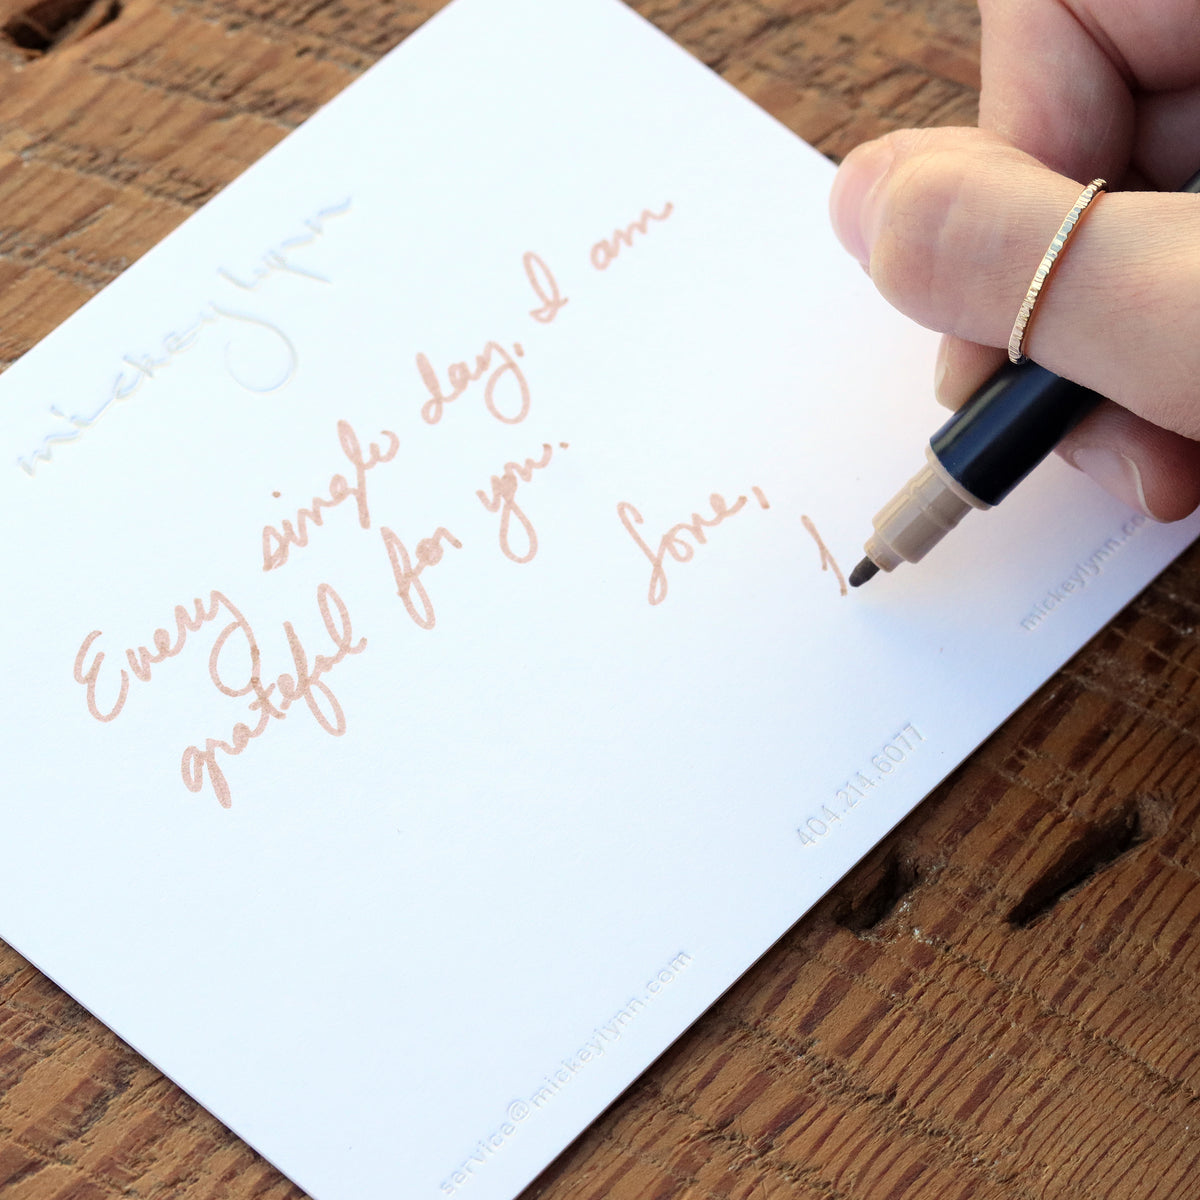 mickeylynn
Every single day, I am
grateful for you.
Love,
service@mickeylynn.com
404.214.6077
mickeylynn.co